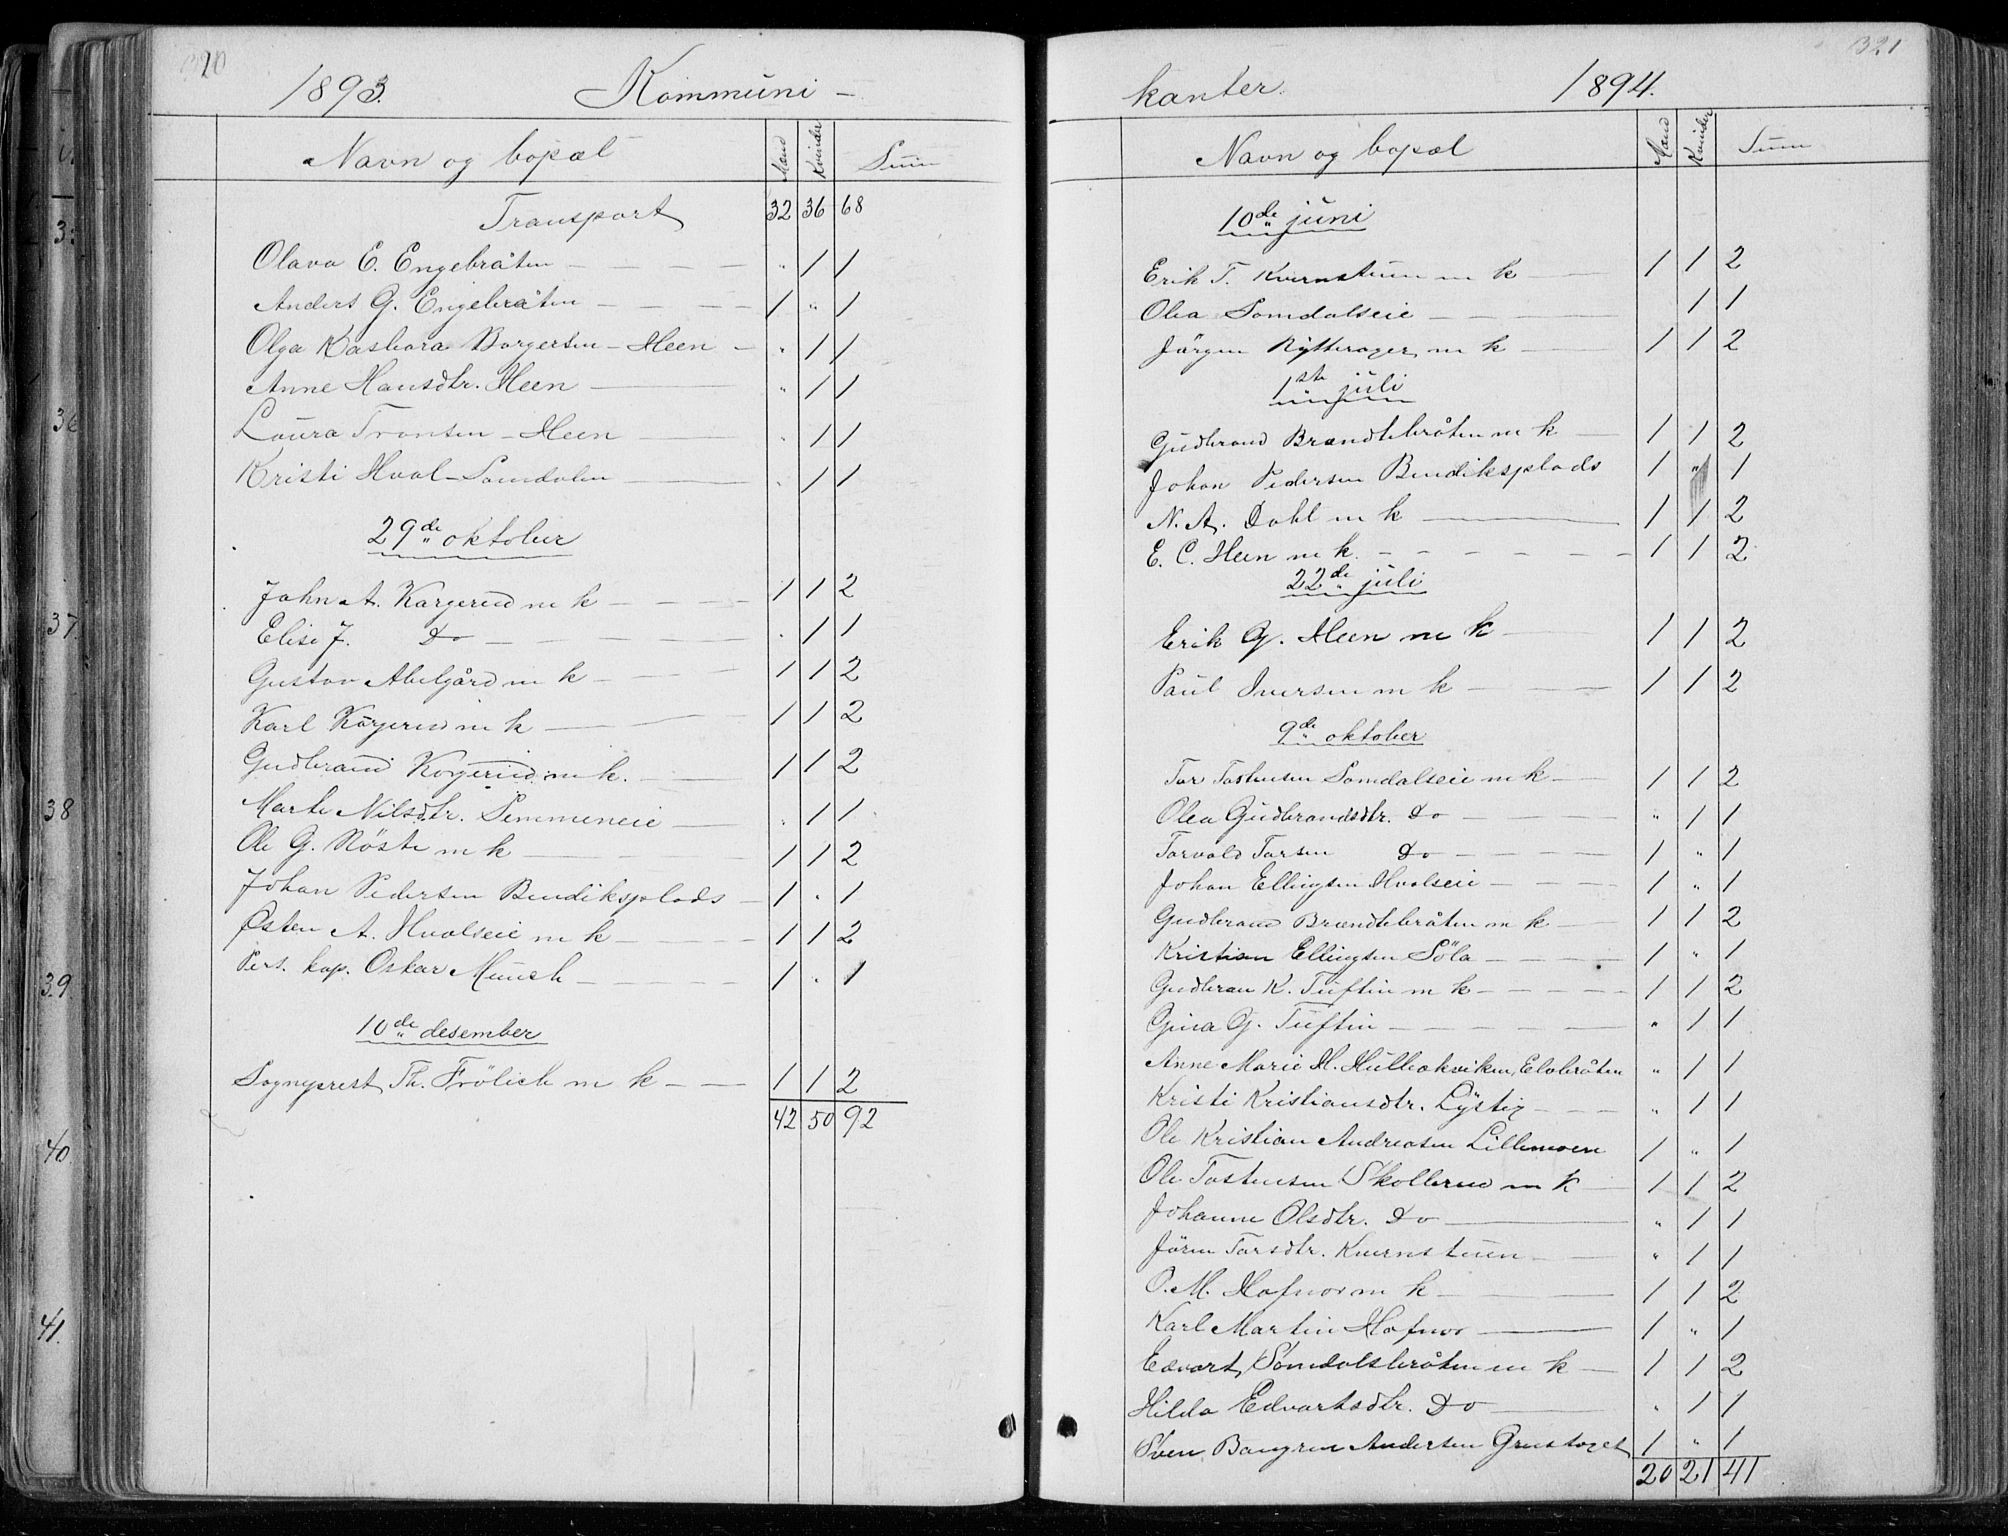 320
1893. Kommuni-
Navn og bopæl Mænd Kvinder Sum
Transport 32 36 68
Olava E. Engebråten - - - - " 1 1
Anders G. Engebråten - - - - 1 " 1
Olga Kasbora Borgersen - Heen - " 1 1
Anne Hansdtr. Heen - " 1 1
Laura Tronsen - Heen - " 1 1
Kristi Hval - Somdalen - " 1 1
29de oktober
John A. Korgerud m k - - - - 1 1 2
Elise J. Do - - - - " 1 1
Gustav Abelgård m k - - - 1 1 2
Karl Korgerud m k - 1 1 2
Gudbrand Korgerud m k. - 1 1 2
Marte Nilsdtr. Semmeneie - " 1 1
Ole G. Röste m k - 1 1 2
Johan Pedersen Bendiksplads - 1 " 1
Østen A. Hvalseie m k - - - - 1 1 2
Pers. kap. Oskar Munch - - - - - 1 " 1
10de desember
Sogneprest Th. Frölich m k - - 1 1 2
42 50 92
321
kanter. 1894.
Navn og bopæl Mænd Kvinder Sum
10de juni
Erik T. Kvernstuen m k - 1 1 2
Olea Somdalseie - - - - 1 1
Jörgen Rytterager m k - 1 1 2
1ste juli
Gudbrand Brændtebråten m k - 1 1 2
Johan Pedersen Bendiksplads 1 " 1
N. A. Dahl m k - 1 1 2
E. C. Heen m k. - - - - - - 1 1 2
22de juli
Erik G. Heen m k - 1 1 2
Paul Iversen m k - - - - 1 1 2
9de oktober
Tor Tostensen Somdalseie m k - 1 1 2
Olea Gudbrandsdtr. Do - - - - " 1 1
Torvald Torsen Do - - - - - 1 " 1
Johan Ellingsen Hvalseie - - - - 1 " 1
Gudbrand Brændtebråten m k - 1 1 2
Kristian Ellingsen Söla - - - - - 1 " 1
Gudbran K. Tuftin m k - - - - - 1 1 2
Gina G. Tuftin - - - - - - " 1 1
Anne Marie H. Hullekviken, Elvbråten " 1 1
Kristi Kristiansdtr. Lystig - - - " 1 1
Ole Kristian Andreasen Lillemoen 1 " 1
Ole Tostensen Skollerud m k - 1 1 2
Johanne Olsdtr. Do - " 1 1
Jören Torsdtr. Kvernstuen - " 1 1
O. M. Hafnor m k - 1 1 2
Karl Martin Hafnor - 1 " 1
Edvart Somdalsbråten m k - 1 1 2
Hilda Edvartsdtr. Do - " 1 1
Sven Bangren Andersen Grustaget 1 " 1
20 21 41
36
37.
38
39.
40
41.